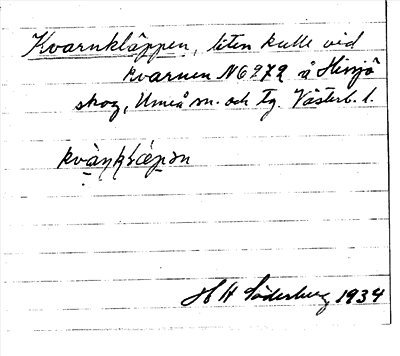 Kvarnkläppen, liten kulle vid
kvarnen N6272 å Hissjö
skog, Umeå sn. och tg. Västerb. l.
H H Söderberg 1934